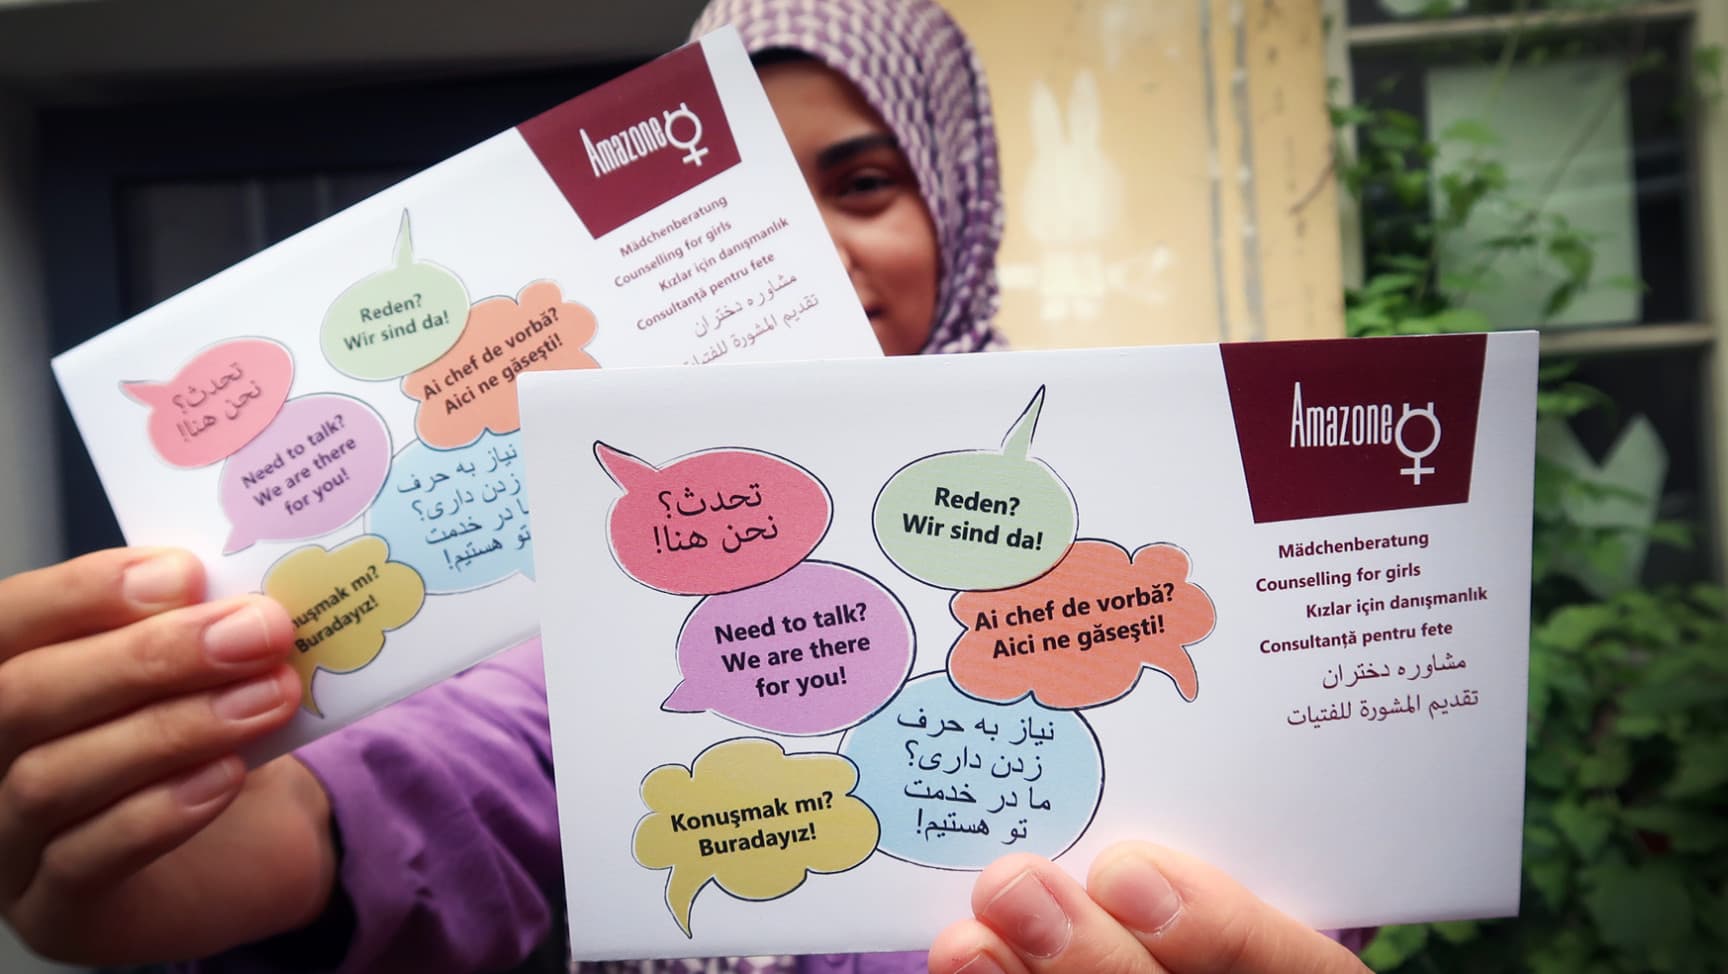 Amazone
Mädchenberatung
Counselling for girls
Kızlar için danışmanlık
Consultanță pentru fete
مشاوره دختران
تقديم المشورة للفتيات
Reden?
Wir sind da!
Ai chef de vorbă?
Aici ne găsești!
تحدث؟
نحن هنا!
Need to talk?
We are there
for you!
نیاز به حرف
زدن داری؟
ما در خدمت
تو هستیم!
nuşmak mı?
Buradayız!
Amazone
Mädchenberatung
Counselling for girls
Kızlar için danışmanlık
Consultanță pentru fete
مشاوره دختران
تقديم المشورة للفتيات
تحدث؟
نحن هنا!
Reden?
Wir sind da!
Need to talk?
We are there
for you!
Ai chef de vorbă?
Aici ne găsești!
نیاز به حرف
زدن داری؟
ما در خدمت
تو هستیم!
Konuşmak mı?
Buradayız!